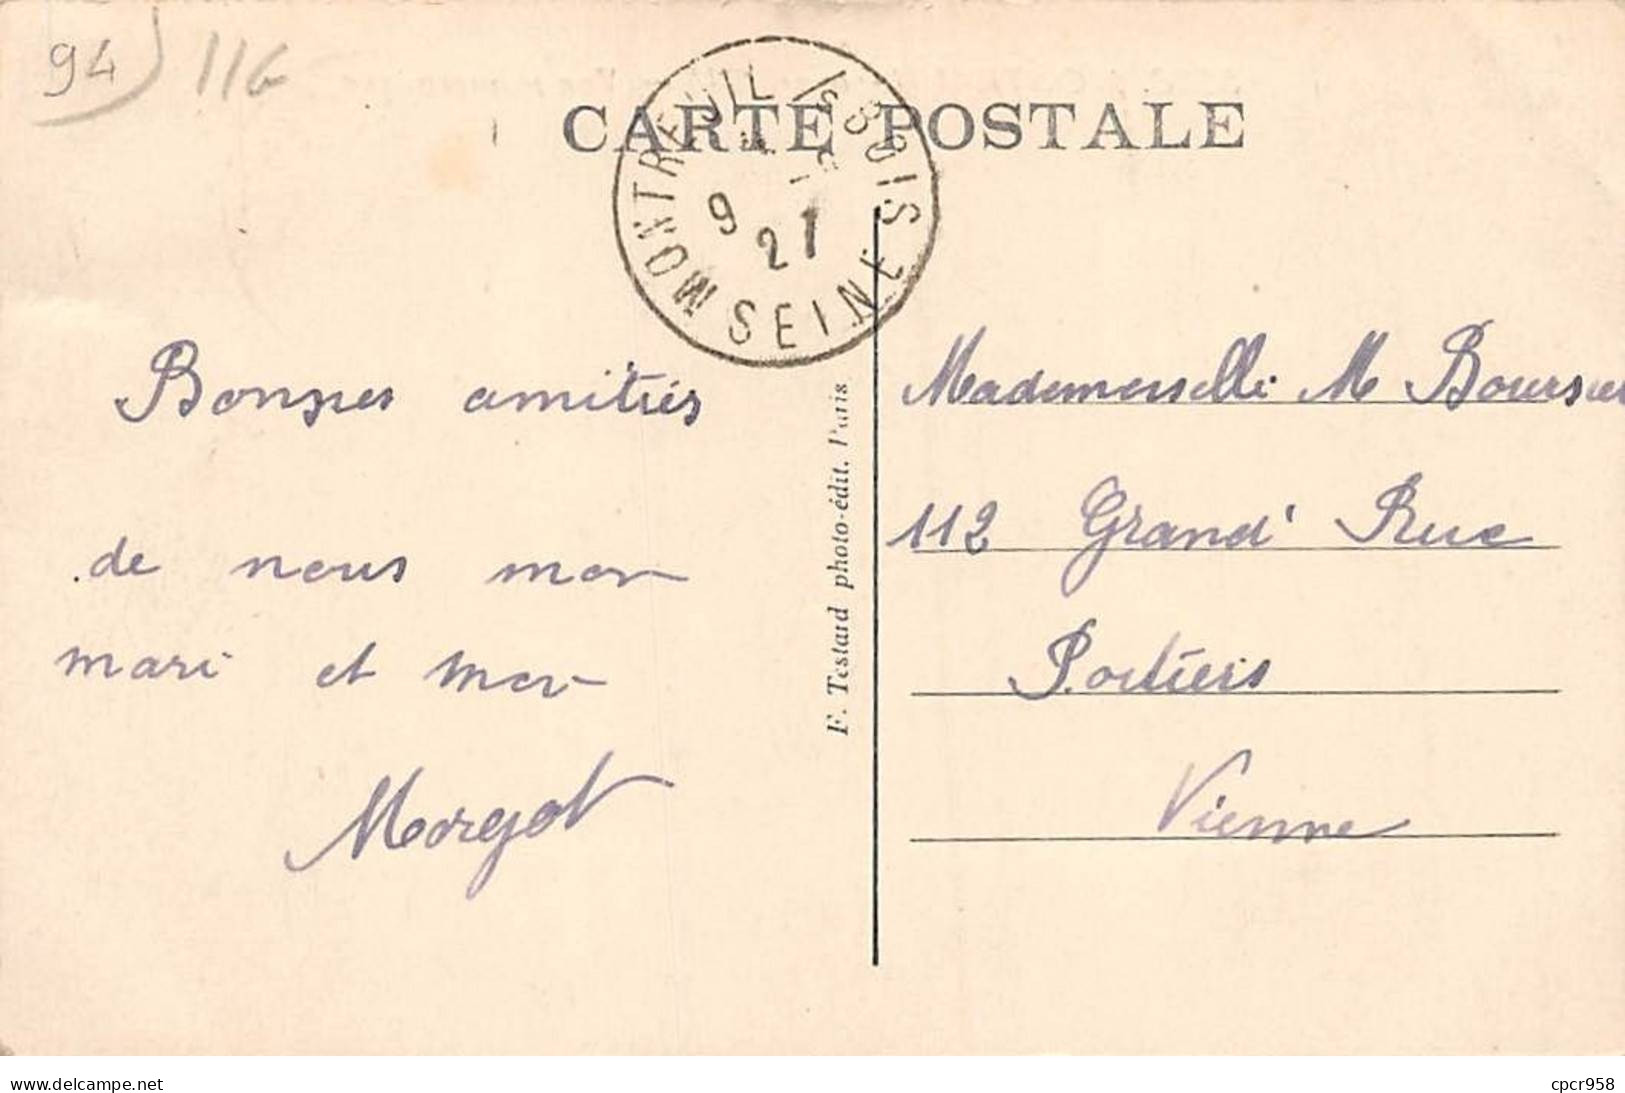 94
116
CARTE POSTALE
MONTREUIL Is BOIS
9
21
SEINE
Bonnes amitiés
de nous mon
mari et mon
Margot
F. Testard photo-édit. Paris
Mademoiselle M Boursier
112 Grand' Rue
Poitiers
Vienne
www.delcampe.net
cpcr958